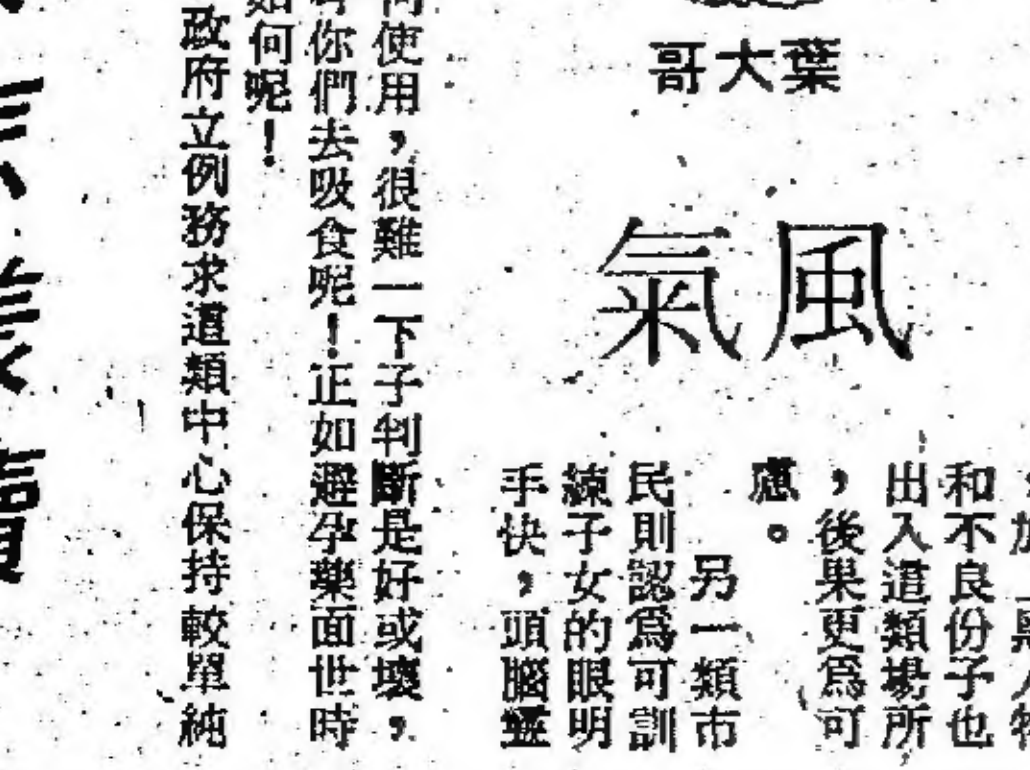 葉大哥
風氣
和不良份子也
出入這類場所
，後果更爲可
慮。
另一類市
民則認爲可訓
練子女的眼明
手快，頭腦靈
使用，很難一下子判斷是好或壞，
你們去吸食呢！正如避孕藥面世時
如何呢！
政府立例務求這類中心保持較單純